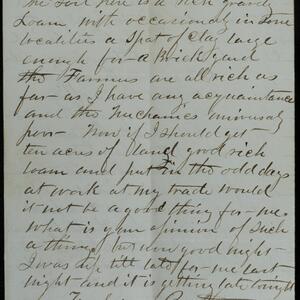 the soil here is a rich gravely
Loam with occasionaly in some
localities a spot of clay large
enough for a Brick yard
the Farmers are all rich as
far as I have any acquaintance
and the Mechanics universaly
poor Now if I should get
ten acres of land good rich
Loam and put in the odd days
at work at my trade would
it not be a good thing for me
what is your opinion of such
a thing but now good night
I was up till late for me last
night and it is getting late tonight